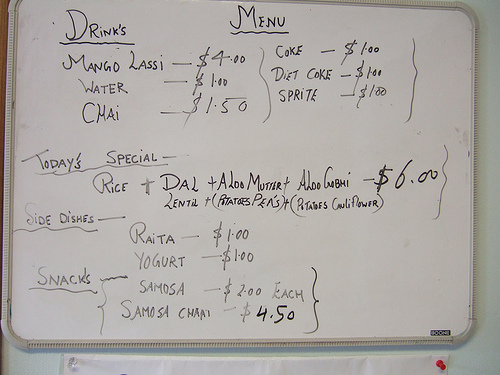 MENU
DRINK'S
MANGO LASSI — $4.00
WATER — $1.00
CHAI — $1.50
COKE — $1.00
DIET COKE — $1.00
SPRITE — $1.00
TODAY'S SPECIAL —
RICE + DAL + ALOO MUTTER + ALOO GOBHI — $6.00
LENTIL + (POTATOES PEA'S) + (POTATOES CAULIFLOWER)
SIDE DISHES —
RAITA — $1.00
YOGURT — $1.00
SNACK'S —
SAMOSA — $2.00 EACH
SAMOSA CHAAT — $4.50
BOONE